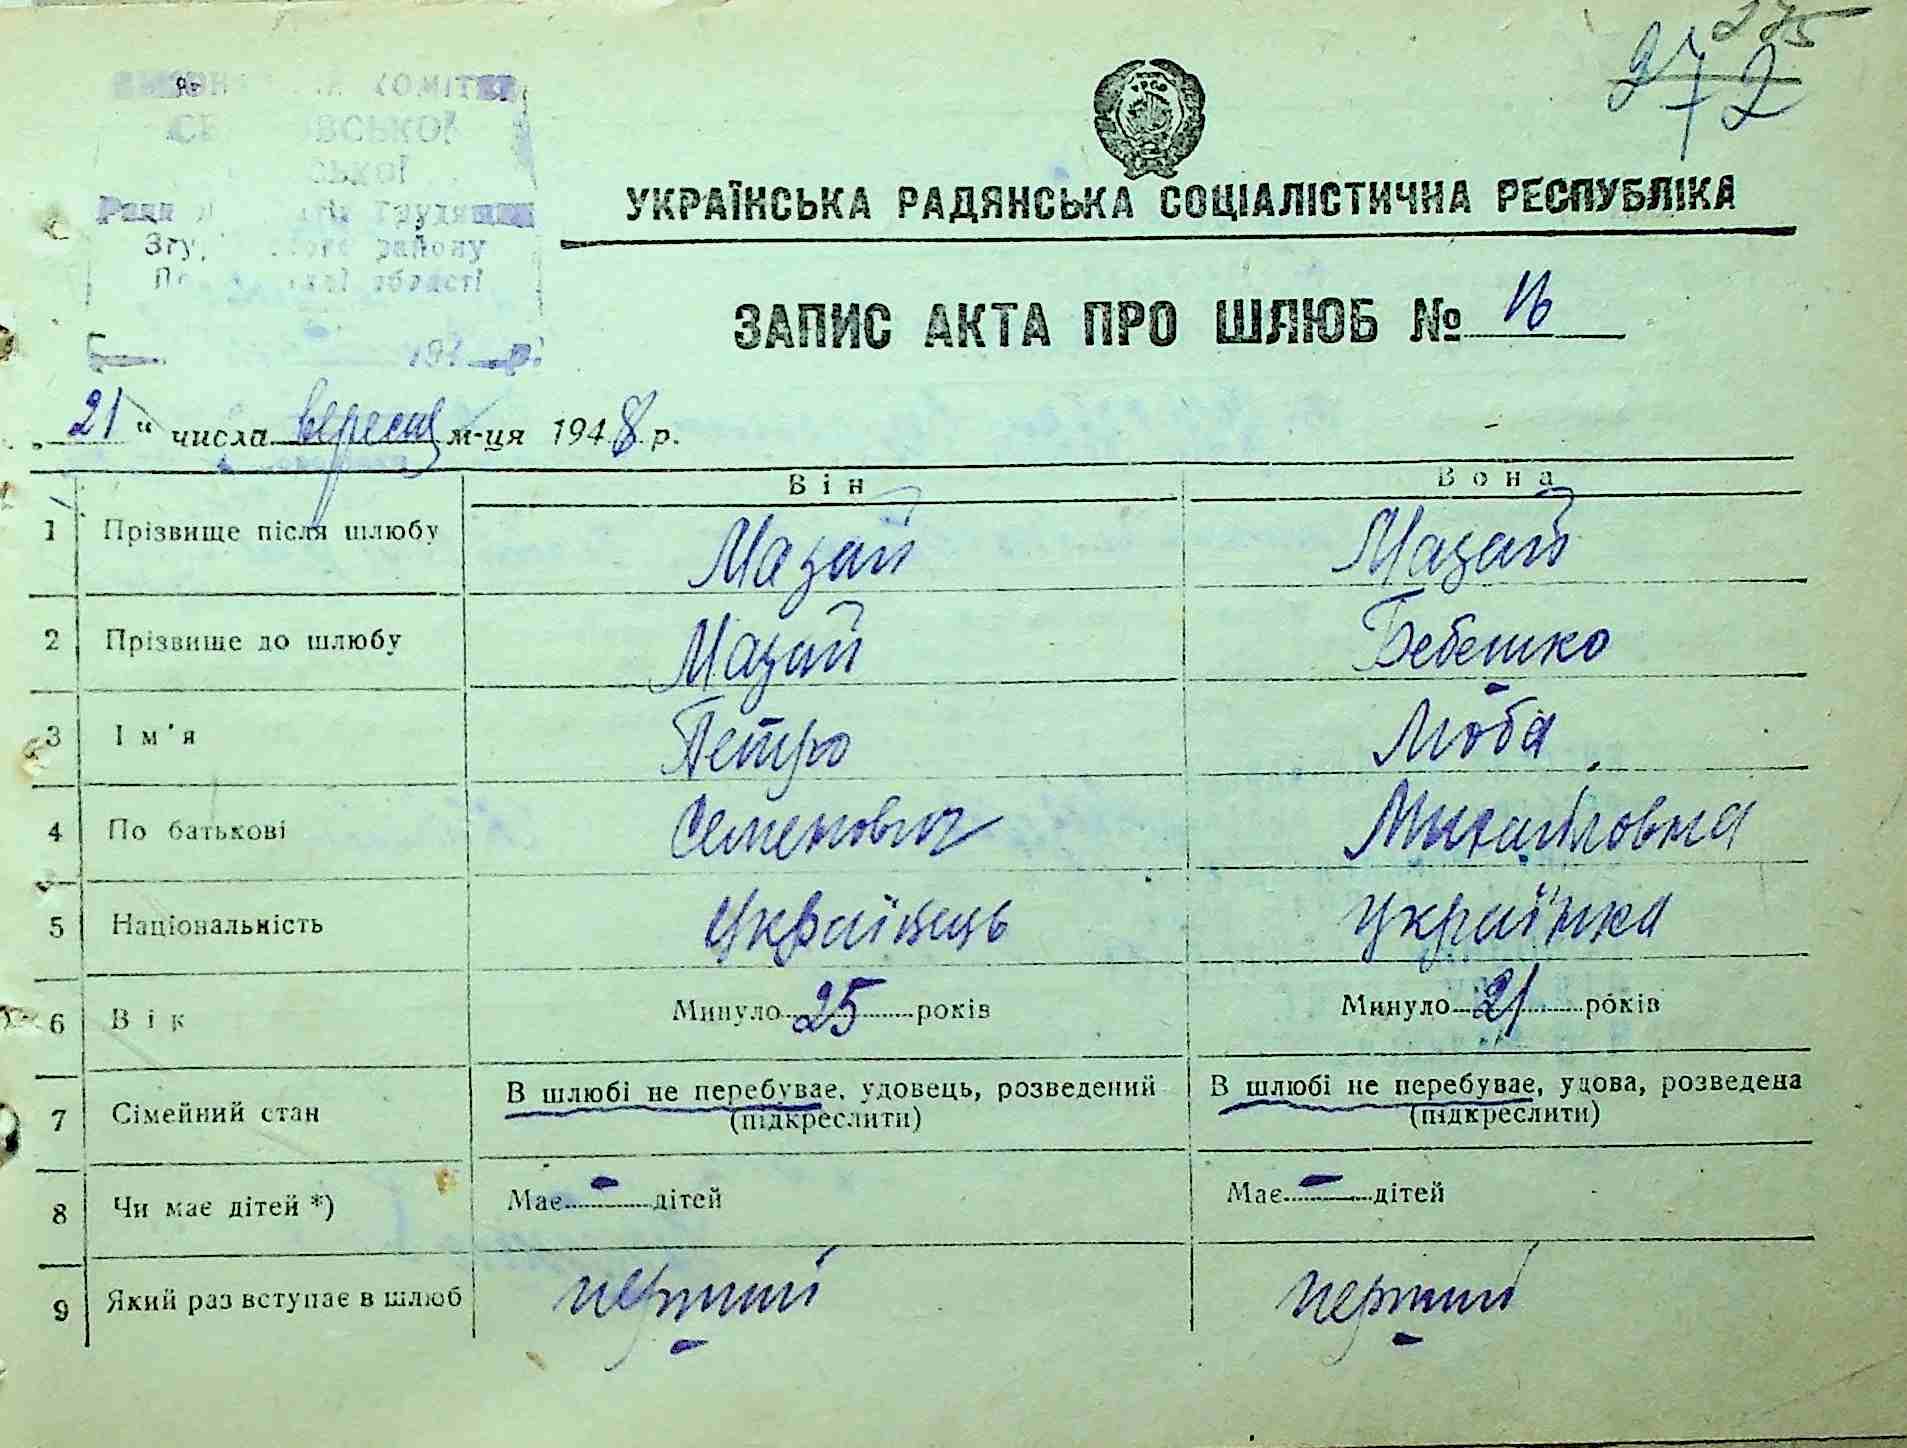 275
272
КОМІТЕ
СЬКОЇ
Ради Трудящих
району
області
194 р.
УКРАЇНСЬКА РАДЯНСЬКА СОЦІАЛІСТИЧНА РЕСПУБЛІКА
ЗАПИС АКТА ПРО ШЛЮБ № 16
„21“ числа вересня м-ця 1948 р.
Він Вона
1 Прізвище після шлюбу Мазай Мазай
2 Прізвище до шлюбу Мазай Бебешко
3 Ім'я Петро Люба
4 По батькові Семенович Михайловна
5 Національність Українець Українка
6 Вік Минуло 25 років Минуло 21 років
7 Сімейний стан В шлюбі не перебуває, удовець, розведений (підкреслити) В шлюбі не перебуває, удова, розведена (підкреслити)
8 Чи має дітей *) Має - дітей Має - дітей
9 Який раз вступає в шлюб перший перший